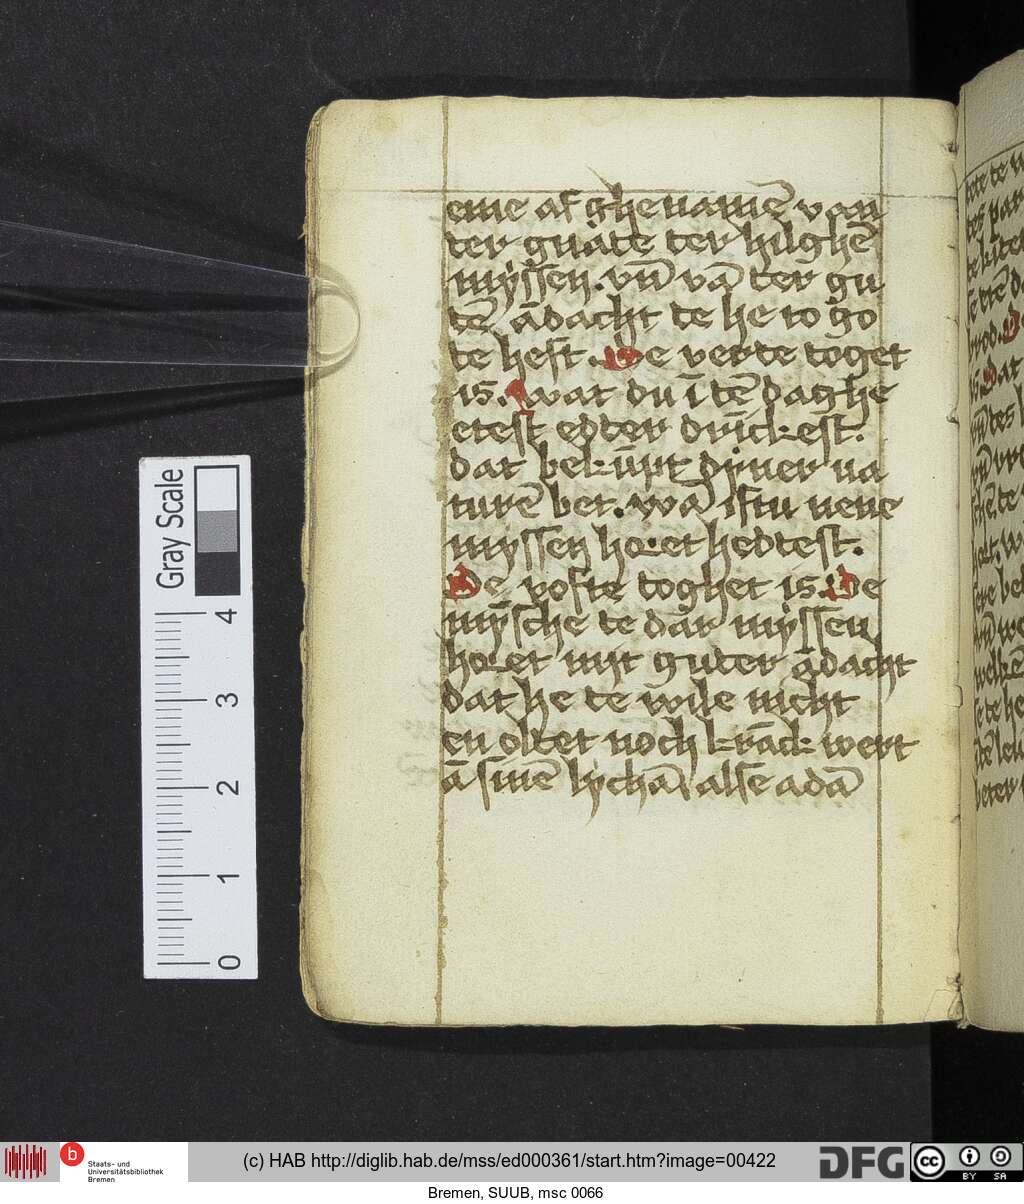 eme af ghenamē van
ter guate ter hilghē
mÿssen. vn̄ vā ter gu
tē ādacht te he to go
te heft. De verte toget
is. wat du ī tē daghe
etest edter drīckest.
dat bekūpt dÿner na
turē bet. wā istu nene
myssen horet hedtest.
De vofte toghet is. De
mÿsche te dar mÿssen
horet mit guter ādacht
dat he te wile nicht
en oltet noch krāck wert
ā sinē lychā alse adā
Gray Scale
4
3
2
1
0
Staats- und
Universitätsbibliothek
Bremen
(c) HAB http://diglib.hab.de/mss/ed000361/start.htm?image=00422
DFG
cc BY SA
Bremen, SUUB, msc 0066